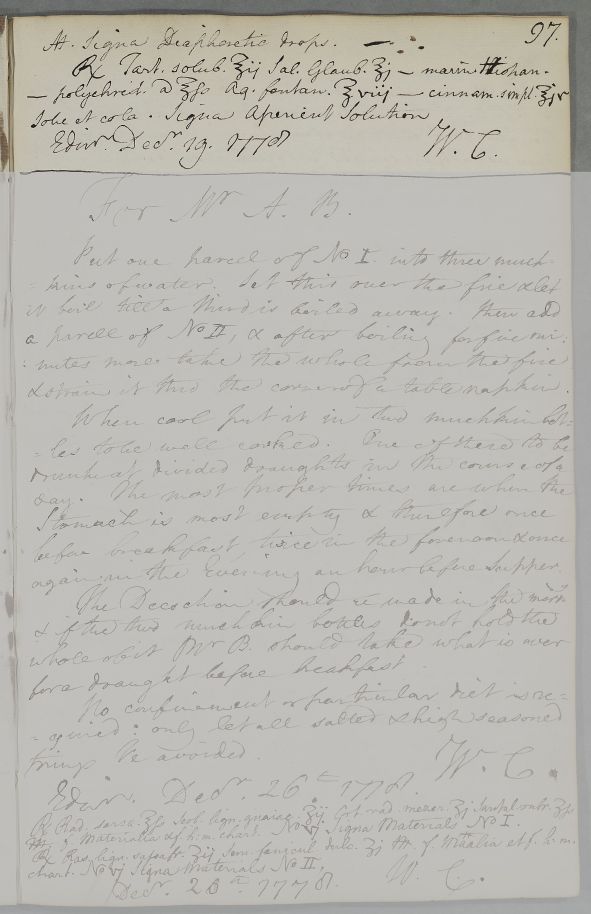 97.
M. Signa Diaphoretic drops. —
℞ Tart. solub. ℥ij Sal. Glaub. ℥j — marin
— polychrest. a ℥ſs Aq. fontan. ℥viij — cinnam. simpl. ℥jv
Solve et cola. Signa Aperient Solution
Edinr. Decr. 19. 1778 W. C.
For Mr A. B.
Put one parcel of No I. into three much-
-kins of water. Set this over the fire & let
it boil till a third is boiled away. Then add
a parcel of No II, & after boiling for five mi:
:nutes more take the whole from the fire
& strain it thro the corner of a table napkin.
When cool put it in two muchkin bot=
=les to be well corked. One of these to be
drunk at divided draughts in the course of a
day. The most proper times are when the
Stomach is most empty & therefore once
before breakfast, twice in the forenoon & once
again in the Evening an hour before Supper.
The Decoction should be made in the morn
& if the two muchkin bottles do not hold the
whole of it Mr B. should take what is over
for a draught before breakfast.
No confinement or particular diet is re=
=quired: only let all salted & high seasoned
things be avoided.
W. C.
Edinr. Decr 26th 1778.
℞ Rad. sarsa. ℥ſs Scob. lign. guaiac. ℥ij. Crt. rad. mezer. ʒj
M. f. Materialia d. f. h. m. chart. No vj Signa Materials No I.
℞ Ras. lign. sassafr. ℥ij Sem. fenicul. dulc. ʒj M. f. Mthalia et f. h. m.
chart. No vj Signa Materials No II.
Decr. 26th 1778. W. C.